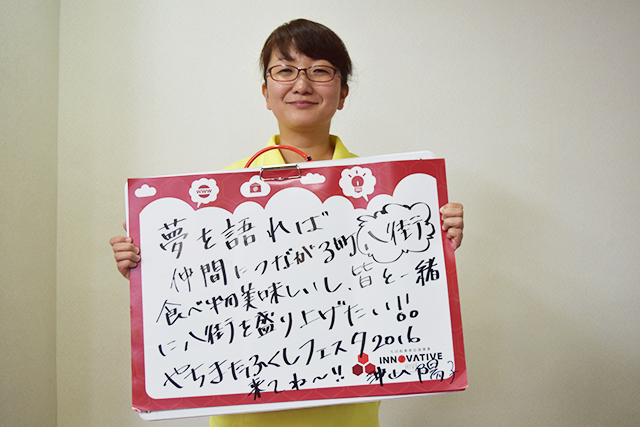 www
夢を語れば
仲間につながる町八街
食べ物美味しいし、皆と一緒
に八街を盛り上げたい!!
やちまたふくしフェスタ2016
来てね〜!!
INNOVATIVE